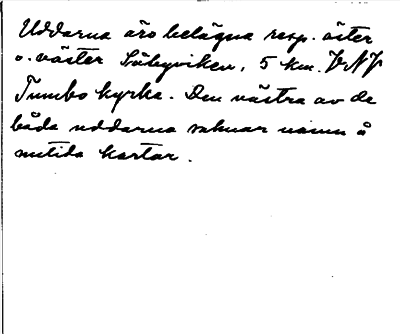 Uddarna äro belägna resp. öster
o. väster Säbyviken, 5 km. VNV
Tumbo kyrka. Den västra av de
båda uddarna saknar namn å
nutida kartor.